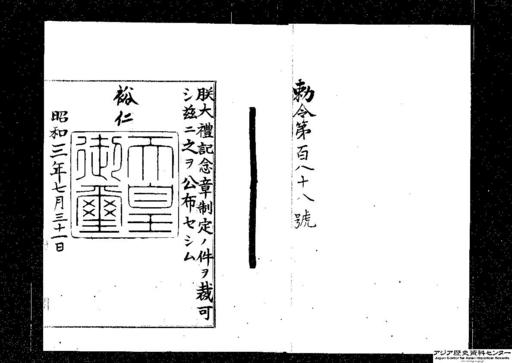 勅令第百八十八號
朕大禮記念章制定ノ件ヲ裁可
シ茲ニ之ヲ公布セシム
裕仁
天皇
御璽
昭和三年七月三十一日
アジア歴史資料センター
Japan Center for Asian Historical Records